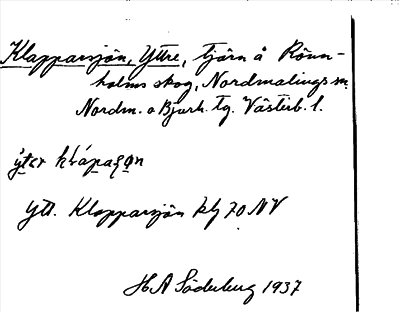 Klapparsjön, Yttre, tjärn å Rönn-
holms skog, Nordmalings sn.
Nordm. o Bjurh. tg. Västerb. l.
ỳtər kḷápaṣọn
Ytt. Klapparsjön kbl 70 NV
H A Söderberg 1937